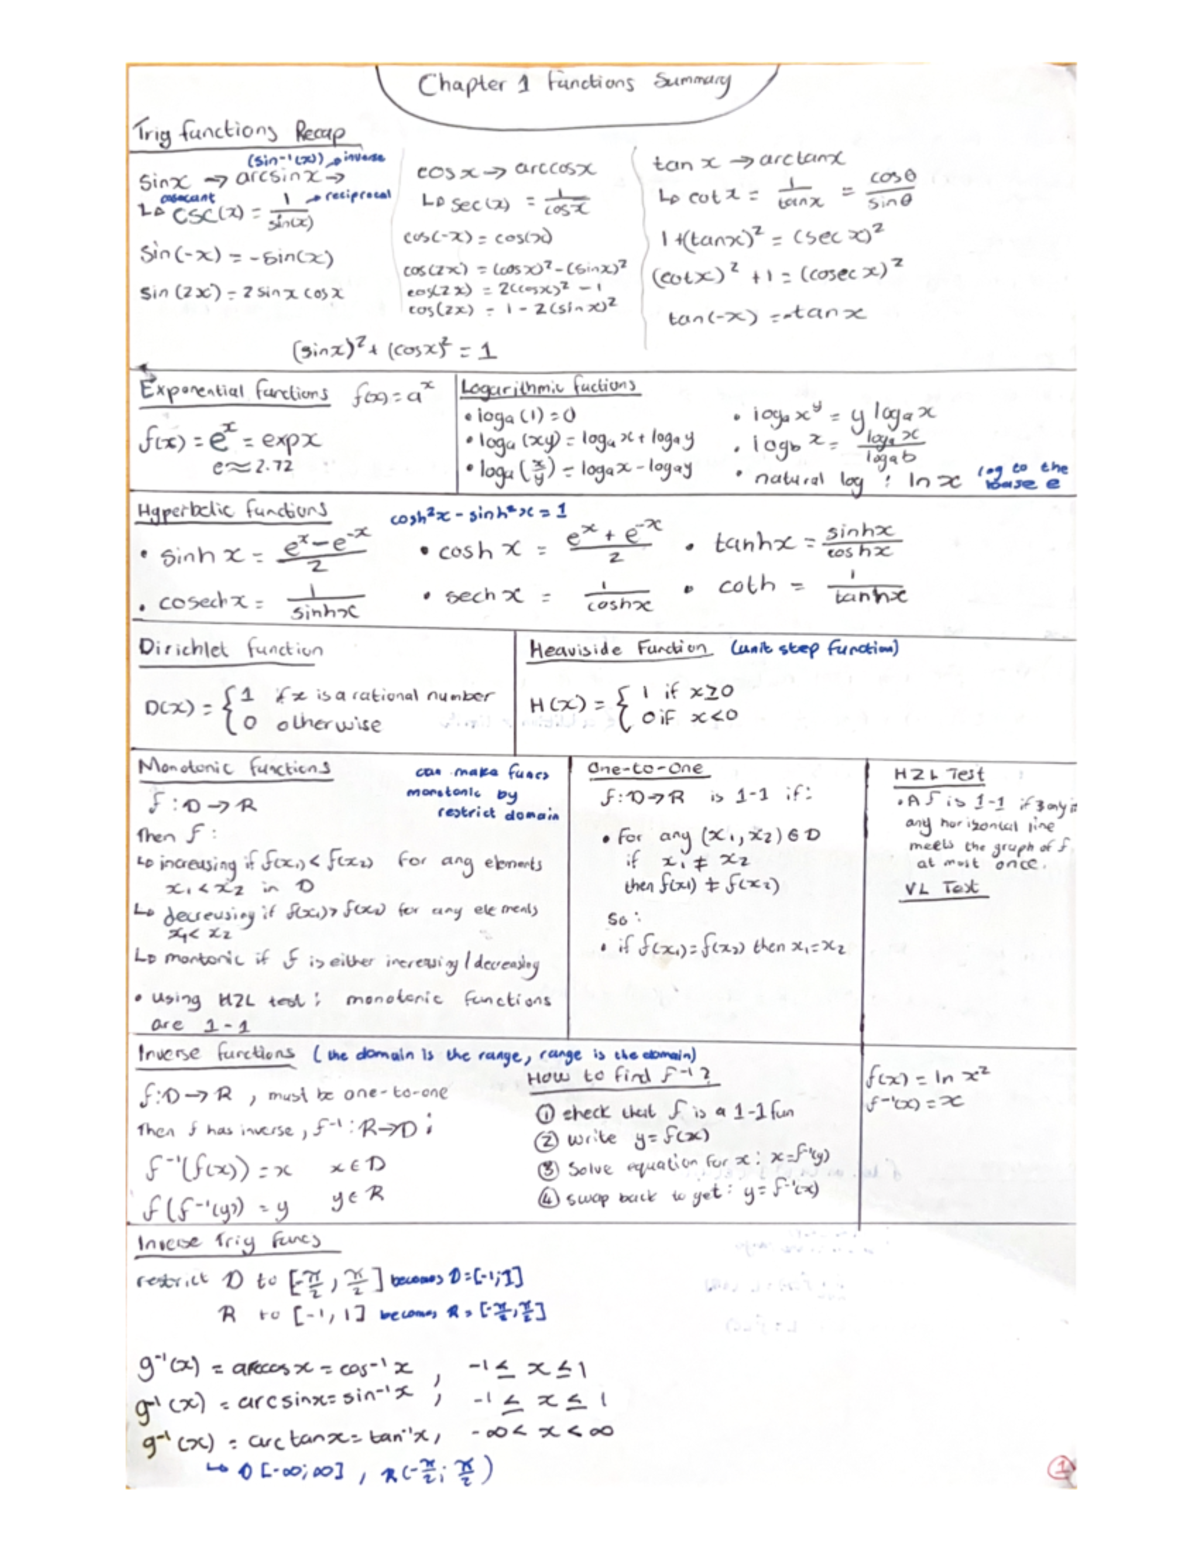 Chapter 1 Functions Summary
Trig functions Recap
(sin⁻¹(x)) → inverse
sinx → arcsinx →
cosecant
↳ csc(x) = 1/sin(x) → reciprocal
sin(-x) = -sin(x)
sin(2x) = 2sinx cosx
cosx → arccosx
↳ sec(x) = 1/cosx
cos(-x) = cos(x)
cos(2x) = (cosx)² - (sinx)²
cos(2x) = 2(cosx)² - 1
cos(2x) = 1 - 2(sinx)²
tanx → arctanx
↳ cotx = 1/tanx = cosθ/sinθ
1+(tanx)² = (secx)²
(cotx)² + 1 = (cosecx)²
tan(-x) = -tanx
(sinx)² + (cosx)² = 1
Exponential functions f(x) = aˣ
f(x) = eˣ = expx
e ≈ 2.72
Logarithmic fuctions
• logₐ(1) = 0
• logₐ(xy) = logₐx + logₐy
• logₐ(x/y) = logₐx - logₐy
• logₐxʸ = y logₐx
• log_b x = logₐx/logₐb
• natural log : lnx log to the
base e
Hyperbolic functions
cosh²x - sinh²x = 1
• sinhx = (eˣ-e⁻ˣ)/2 • coshx = (eˣ+e⁻ˣ)/2 • tanhx = sinhx/coshx
• cosechx = 1/sinhx • sechx = 1/coshx • coth = 1/tanhx
Dirichlet function
D(x) = { 1 if x is a rational number
0 otherwise
Heaviside Function (unit step function)
H(x) = { 1 if x≥0
0 if x<0
Monotonic functions
can make funcs
monotonic by
restrict domain
f : D → R
Then f :
↳ increasing if f(x₁) < f(x₂) for any elements
x₁ < x₂ in D
↳ decreusing if f(x₁) > f(x₂) for any elements
x₁ < x₂
↳ montonic if f is either increasing / decreasing
• using HZL test : monotonic functions
are 1-1
One-to-One
f: D→R is 1-1 if:
• For any (x₁, x₂) ∈ D
if x₁ ≠ x₂
then f(x₁) ≠ f(x₂)
So :
• if f(x₁) = f(x₂) then x₁ = x₂
HZL Test
• A f is 1-1 if
any horizontal line
meets the graph of f
at most once.
VL Test
Inverse functions (the domain is the range, range is the domain)
f: D→R , must be one-to-one
Then f has inverse, f⁻¹ : R→D ;
f⁻¹(f(x)) = x x ∈ D
f(f⁻¹(y)) = y y ∈ R
How to find f⁻¹ ?
① check that f is a 1-1 fun
② write y = f(x)
③ Solve equation for x : x = f⁻¹(y)
④ swap back to get : y = f⁻¹(x)
f(x) = ln x²
f⁻¹(x) = x
Inverse Trig Funcs
restrict D to [-π/2 , π/2] becomes D = [-1;1]
R to [-1, 1] becomes R = [-π/2; π/2]
g⁻¹(x) = arccosx = cos⁻¹x , -1 ≤ x ≤ 1
g⁻¹(x) = arcsinx = sin⁻¹x , -1 ≤ x ≤ 1
g⁻¹(x) = arctanx = tan⁻¹x , -∞ < x < ∞
↳ D [-∞;∞] , R (-π/2; π/2)
1